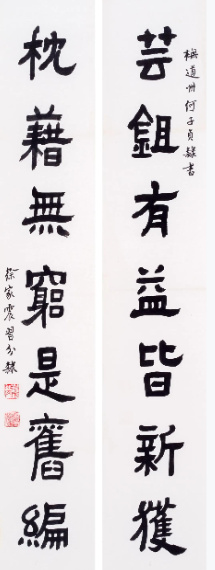 芸鉏有益皆新獲
橅道州何子貞隸書
枕藉無窮是舊編
徐家震習分隸